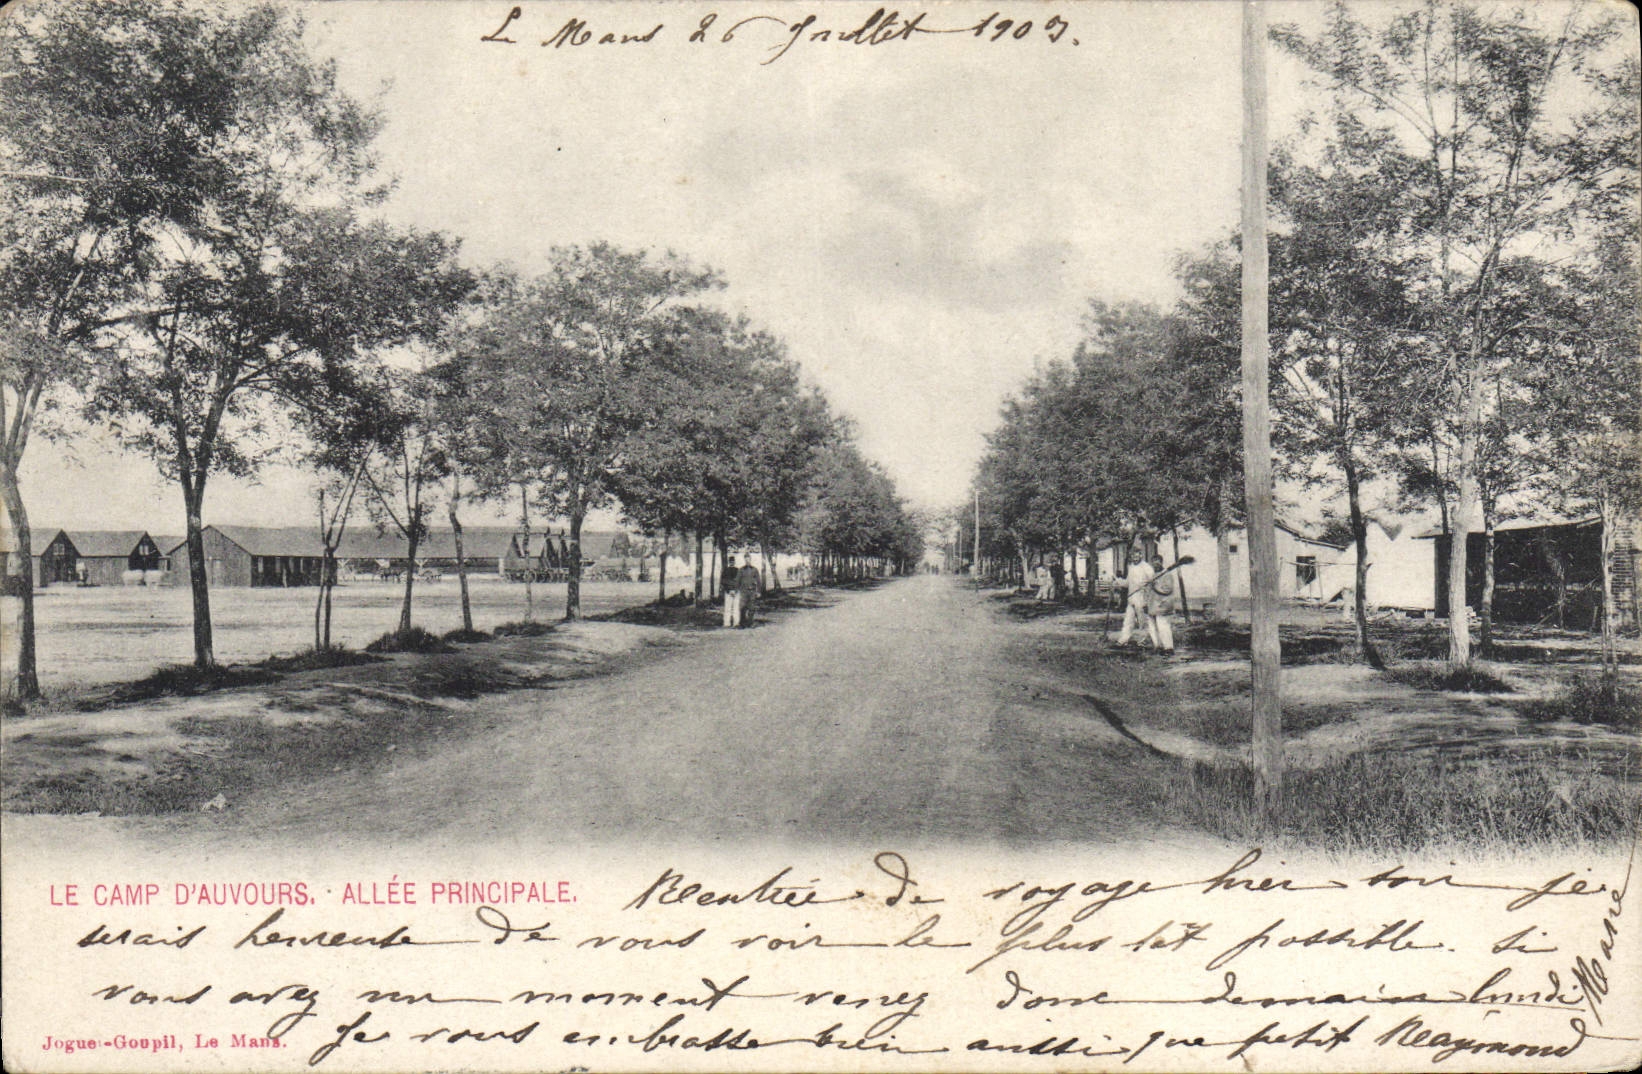 Le Mans 26 Juillet 1903.
LE CAMP D'AUVOURS. - ALLÉE PRINCIPALE.
Rentrée de voyage hier soir je
serais heureuse de vous voir le plus tôt possible. Si
vous avez un moment venez donc demain lundi
Je vous embrasse bien ainsi que petit Raymond
Marie
Jogue-Goupil, Le Mans.